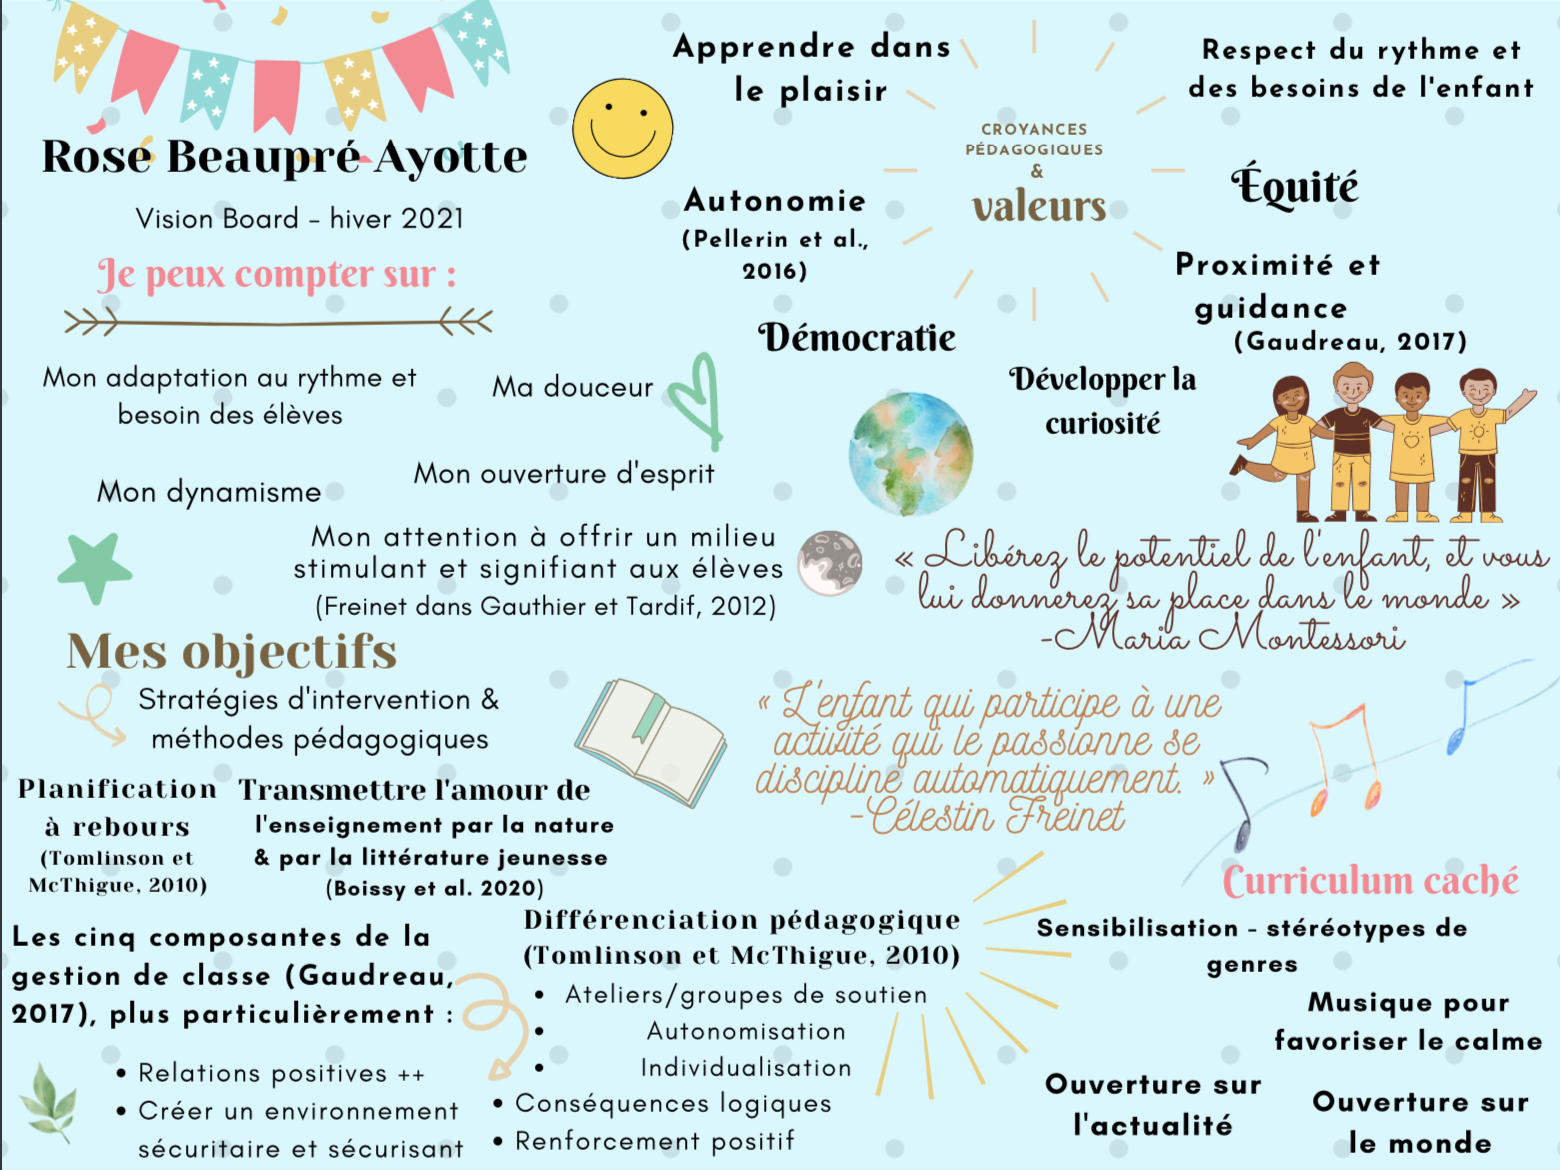 Rose Beaupré Ayotte
Vision Board - hiver 2021
Je peux compter sur :
Mon adaptation au rythme et
besoin des élèves
Ma douceur
Mon dynamisme
Mon ouverture d'esprit
Mon attention à offrir un milieu
stimulant et signifiant aux élèves
(Freinet dans Gauthier et Tardif, 2012)
CROYANCES
PÉDAGOGIQUES
&
valeurs
Apprendre dans
le plaisir
Respect du rythme et
des besoins de l'enfant
Autonomie
(Pellerin et al.,
2016)
Équité
Proximité et
guidance
(Gaudreau, 2017)
Démocratie
Développer la
curiosité
« Libérez le potentiel de l'enfant, et vous
lui donnerez sa place dans le monde »
-Maria Montessori
« L'enfant qui participe à une
activité qui le passionne se
discipline automatiquement. »
-Célestin Freinet
Mes objectifs
Stratégies d'intervention &
méthodes pédagogiques
Planification
à rebours
(Tomlinson et
McThigue, 2010)
Transmettre l'amour de
l'enseignement par la nature
& par la littérature jeunesse
(Boissy et al. 2020)
Les cinq composantes de la
gestion de classe (Gaudreau,
2017), plus particulièrement :
• Relations positives ++
• Créer un environnement
sécuritaire et sécurisant
• Conséquences logiques
• Renforcement positif
Différenciation pédagogique
(Tomlinson et McThigue, 2010)
• Ateliers/groupes de soutien
• Autonomisation
• Individualisation
Curriculum caché
Sensibilisation - stéréotypes de
genres
Musique pour
favoriser le calme
Ouverture sur
l'actualité
Ouverture sur
le monde